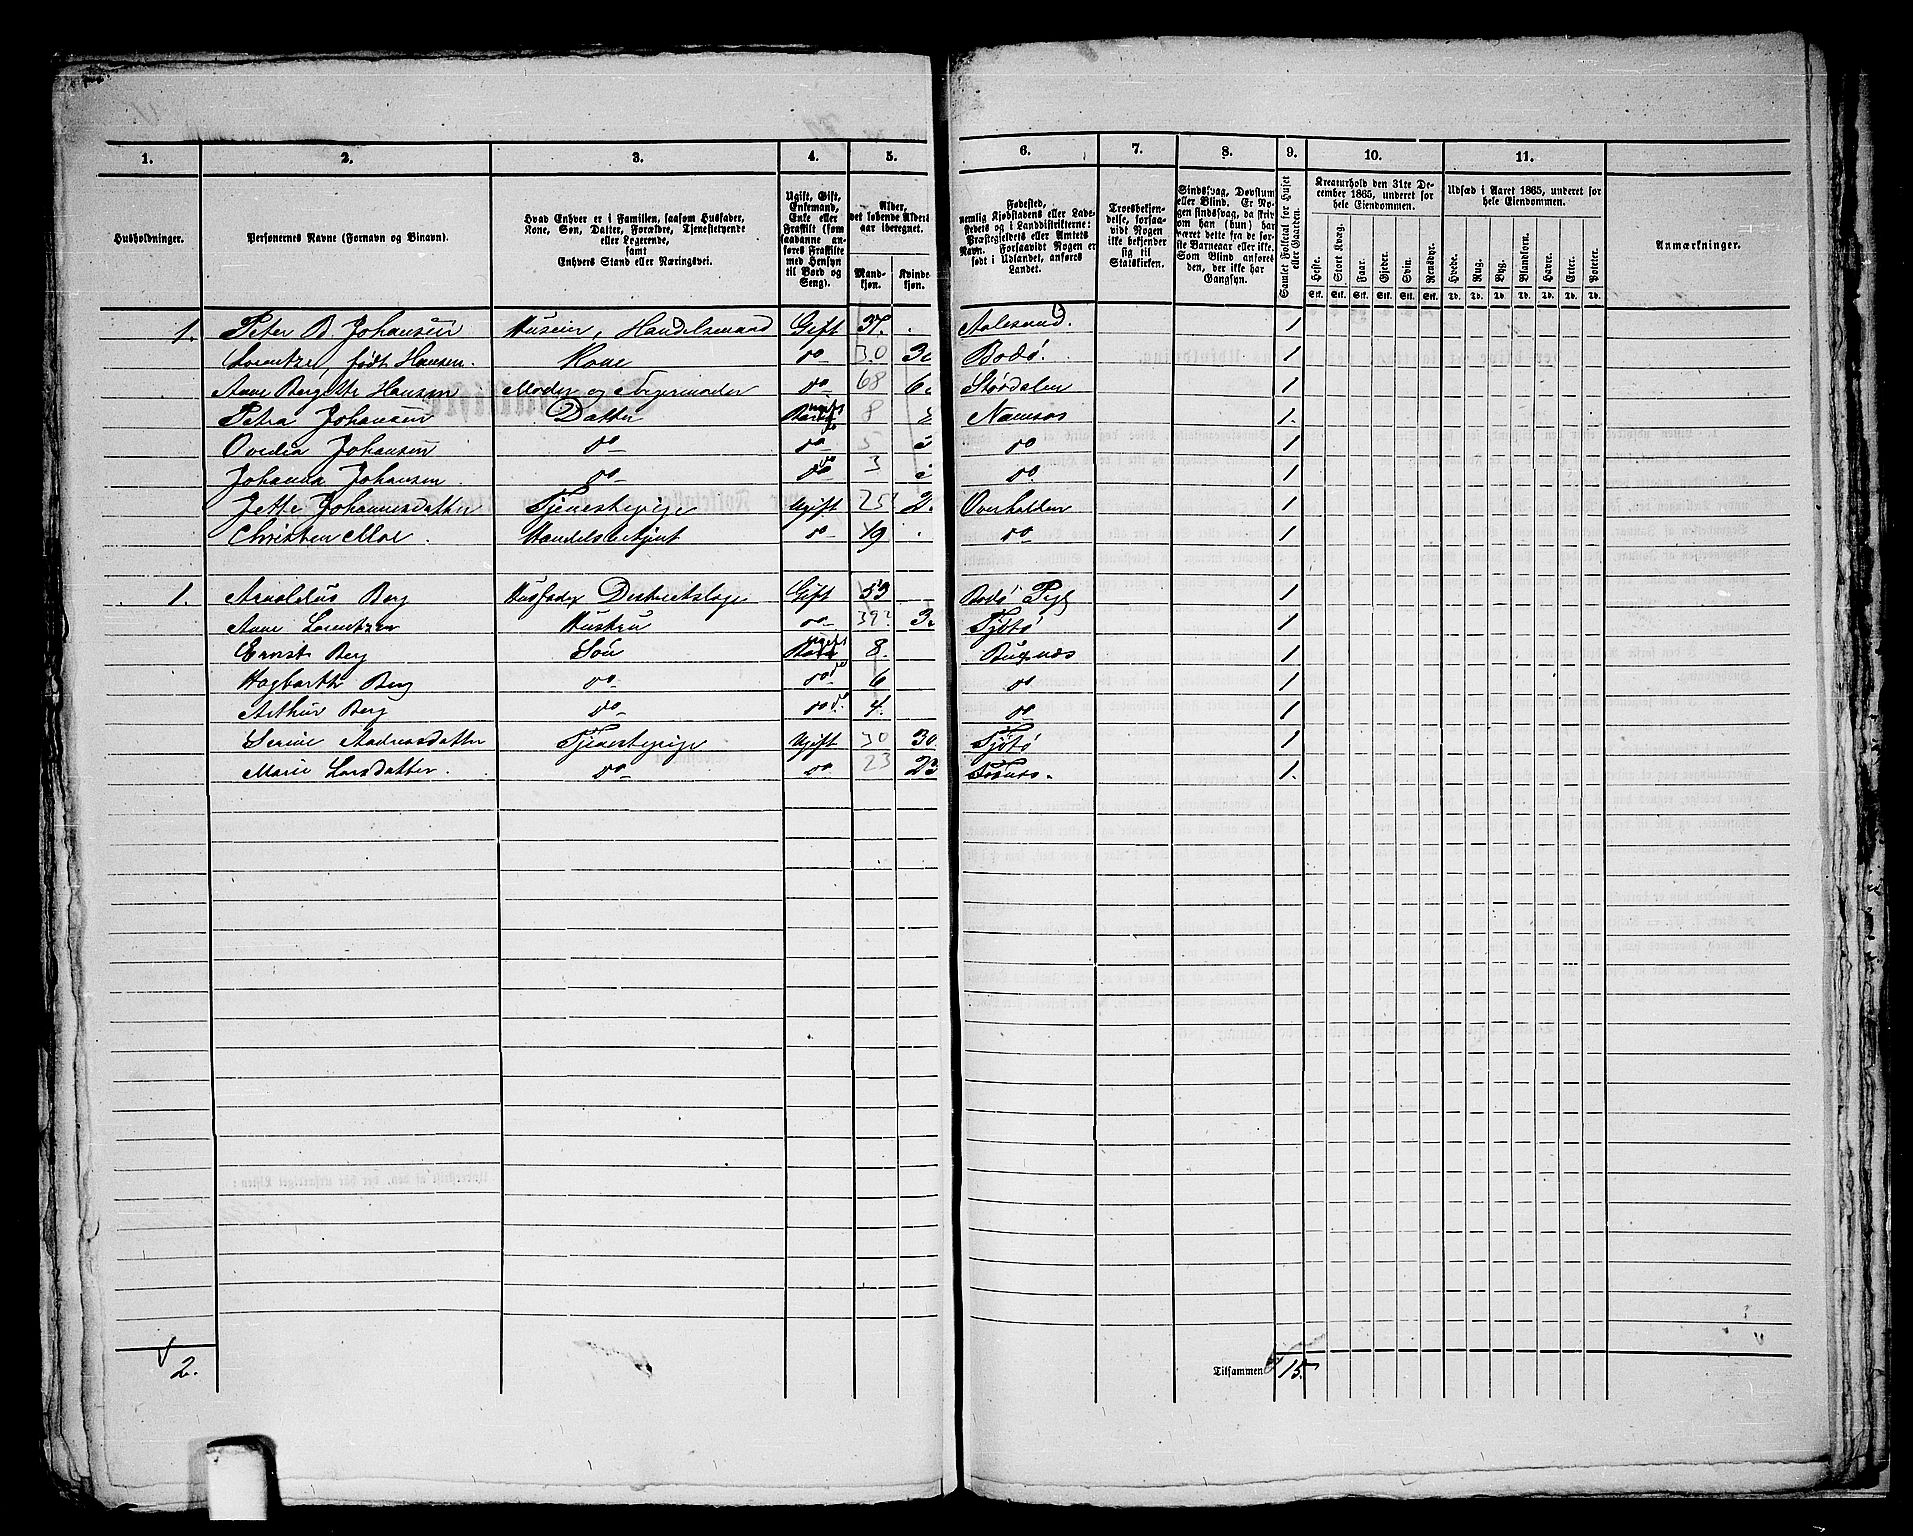 1. 2. 3. 4. 5. 6. 7. 8. 9. 10. 11.
Husholdninger.
Personernes Navne (Fornavn og Binavn).
Hvad Enhver er i Familien, saasom Husfader,
Kone, Søn, Datter, Forældre, Tjenestetyende
eller Logerende,
samt
Enhvers Stand eller Næringsvei.
Ugift, Gift,
Enkemand,
Enke eller
Fraskilt (som
saadanne an-
føres Fraskilte
med Hensyn
til Bord og
Seng).
Alder,
det løbende Alders-
aar iberegnet.
Mand-
kjøn.
Kvinde-
kjøn.
Fødested,
nemlig Kjøbstadens eller Lade-
stedets og i Landdistrikterne:
Præstegjeldets eller Amtets
Navn. Forsaavidt Nogen er
født i Udlandet, anføres
Landet.
Troesbekjen-
delse, forsaa-
vidt Nogen
ikke bekjender
sig til
Statskirken.
Sindssvag, Døvstum
eller Blind. Er No-
gen sindssvag, da skriv
om han (hun) har
været dette fra de før-
ste Barneaar eller ikke.
Som Blind anføres
den, der ikke har
Gangsyn.
Samlet Folketal for Huset
eller Gaarden.
Kreaturhold den 31te De-
cember 1865, underet for
hele Eiendommen.
Heste. Stort Kvæg. Faar. Gjeder. Svin. Rensdyr.
Stk. Stk. Stk. Stk. Stk. Stk.
Udsæd i Aaret 1865, underet for
hele Eiendommen.
Hvede. Rug. Byg. Blandkorn. Havre. Erter. Poteter.
Td. Td. Td. Td. Td. Td. Td.
Anmærkninger.
1. Peter B. Johansen Huseier, Handelsmand Gift 37. Aalesund. 1
Lorentze, født Hansen. Kone do 30 Bodø. 1
Anne Bergitte Hansen Moder og Svigermoder do 68 Størdalen 1
Petra Johansen Datter ugift 8 Namsos 1.
Ovedia Johansen do do 5 do 1
Johanna Johansen do do 3 do 1
Jette Johannesdatter Tjenestepige Ugift 25 Overhalden 1
Christen Moe. Handelsbetjent do 19 do 1
1. Arnoldus Berg Husfader Districtslæge Gift 53 Bodø Pgl 1
Anne Lorentzen Hustru do 39 Tjøtø 1
Ernst Berg Søn ugift 8. 1
Hagbarth Berg do do 6 do 1
Arthur Berg do do 4. do 1
Serine Andreasdatter Tjenestepige Ugift 30 30. Tjøtø 1
Marie Larsdatter. do do 23 23 Fosnes. 1.
2.
Tilsammen 15.